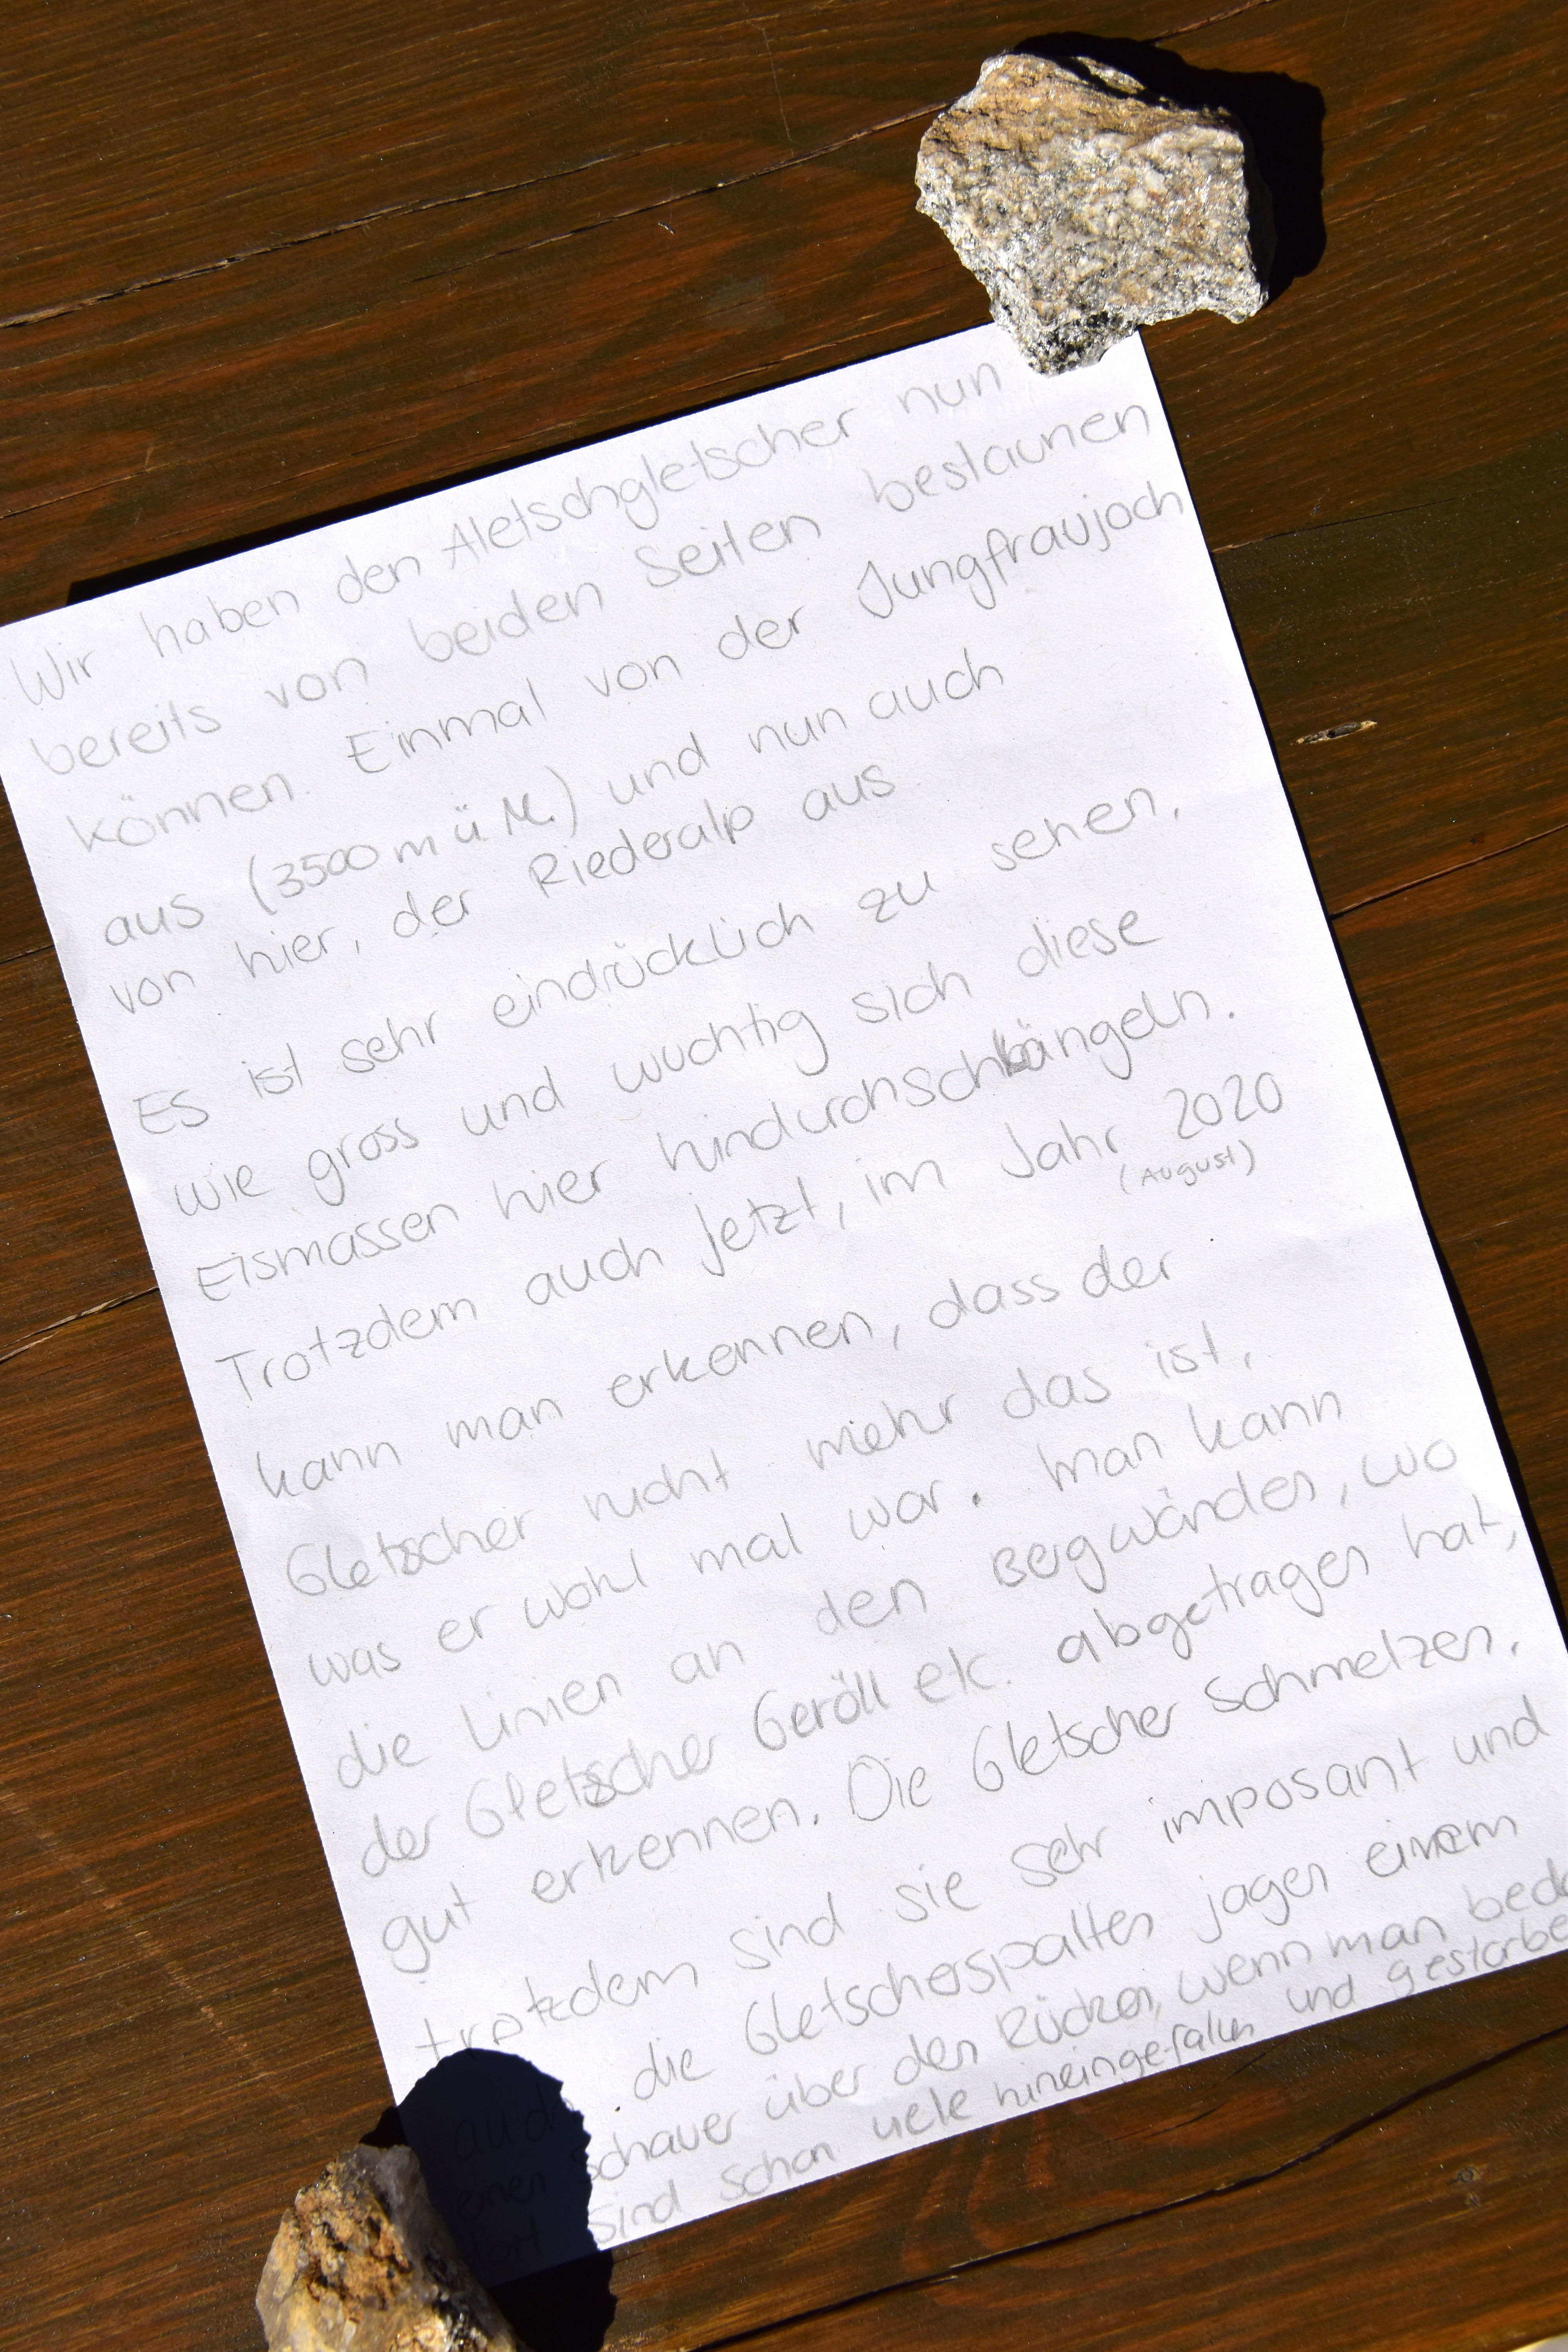 Wir haben den Aletschgletscher nun
bereits von beiden Seiten bestaunen
können. Einmal von der Jungfraujoch
aus (3500 m ü. M.) und nun auch
von hier, der Riederalp aus.
Es ist sehr eindrücklich zu sehen,
wie gross und wuchtig sich diese
Eismassen hier hindurchschlängeln.
Trotzdem auch jetzt, im Jahr 2020
(August)
kann man erkennen, dass der
Gletscher nicht mehr das ist,
was er wohl mal war. Man kann
die Linien an den Bergwänden, wo
der Gletscher Geröll etc. abgetragen hat,
gut erkennen. Die Gletscher schmelzen,
trotzdem sind sie sehr imposant und
auch die Gletscherspalten jagen einem
einen Schauer über den Rücken, wenn man
dort sind schon viele hineingefallen und